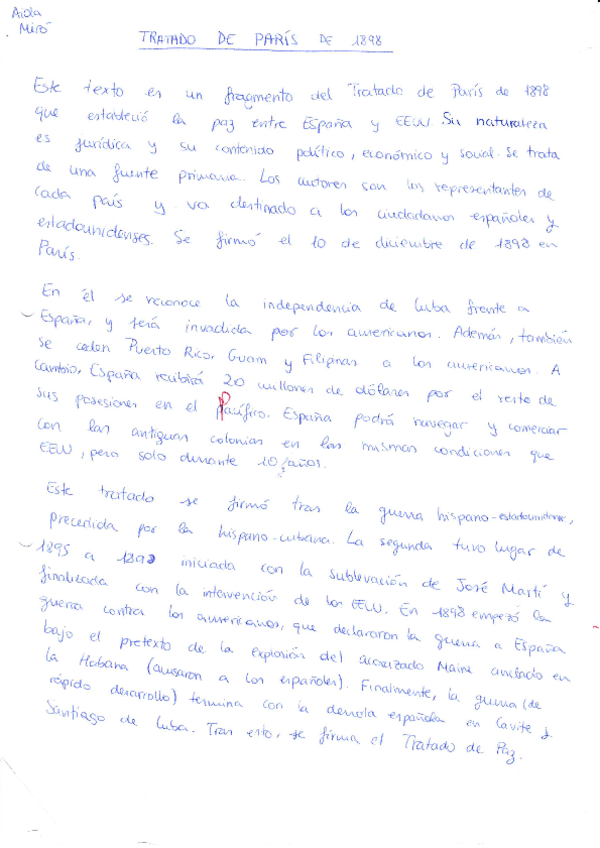 Aida
Miró
TRATADO DE PARÍS DE 1898
Este texto es un fragmento del Tratado de París de 1898
que estableció la paz entre España y EEUU. Su naturaleza
es jurídica y su contenido político, económico y social. Se trata
de una fuente primaria. Los autores son los representantes de
cada país y va destinado a los ciudadanos españoles y
estadounidenses. Se firmó el 10 de diciembre de 1898 en
París.
En él se reconoce la independencia de Cuba frente a
España, y será invadida por los americanos. Además, también
se ceden Puerto Rico, Guam y Filipinas a los americanos. A
cambio, España recibirá 20 millones de dólares por el resto de
sus posesiones en el Pacífico. España podrá navegar y comerciar
con las antiguas colonias en las mismas condiciones que
EEUU, pero solo durante 10 años.
Este tratado se firmó tras la guerra hispano-estadounidense,
precedida por la hispano-cubana. La segunda tuvo lugar de
1895 a 1898 iniciada con la sublevación de José Martí y
finalizada con la intervención de los EEUU. En 1898 empezó la
guerra contra los americanos, que declararon la guerra a España
bajo el pretexto de la explosión del acorazado Maine anclado en
la Habana (acusaron a los españoles). Finalmente, la guerra (de
rápido desarrollo) termina con la derrota española en Cavite y
Santiago de Cuba. Tras esto, se firma el Tratado de Paz.